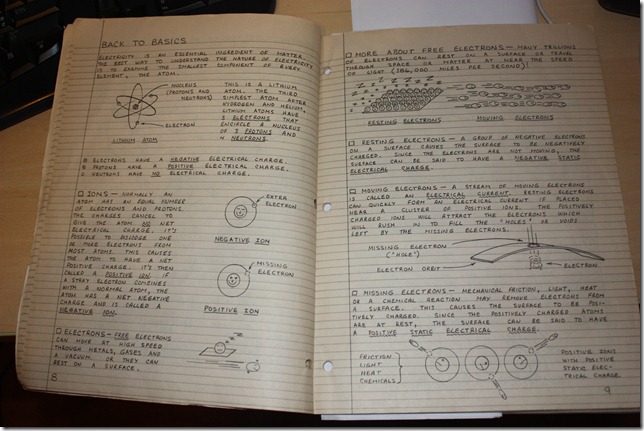 BACK TO BASICS
ELECTRICITY IS AN ESSENTIAL INGREDIENT OF MATTER.
THE BEST WAY TO UNDERSTAND THE NATURE OF ELECTRICITY
IS TO EXAMINE THE SMALLEST COMPONENT OF EVERY
ELEMENT, THE ATOM.
NUCLEUS
(PROTONS AND
NEUTRONS)
ELECTRON
LITHIUM ATOM
THIS IS A LITHIUM
ATOM. THE THIRD
SIMPLEST ATOM AFTER
HYDROGEN AND HELIUM,
LITHIUM ATOMS HAVE
3 ELECTRONS THAT
ENCIRCLE A NUCLEUS
OF 3 PROTONS AND
4 NEUTRONS.
ELECTRONS HAVE A NEGATIVE ELECTRICAL CHARGE.
PROTONS HAVE A POSITIVE ELECTRICAL CHARGE.
NEUTRONS HAVE NO ELECTRICAL CHARGE.
IONS — NORMALLY AN
ATOM HAS AN EQUAL NUMBER
OF ELECTRONS AND PROTONS.
THE CHARGES CANCEL TO
GIVE THE ATOM NO NET
ELECTRICAL CHARGE. IT'S
POSSIBLE TO DISLODGE ONE
OR MORE ELECTRONS FROM
MOST ATOMS. THIS CAUSES
THE ATOM TO HAVE A NET
POSITIVE CHARGE. IT'S THEN
CALLED A POSITIVE ION. IF
A STRAY ELECTRON COMBINES
WITH A NORMAL ATOM, THE
ATOM HAS A NET NEGATIVE
CHARGE AND IS CALLED A
NEGATIVE ION.
EXTRA
ELECTRON
NEGATIVE ION
MISSING
ELECTRON
POSITIVE ION
ELECTRONS — FREE ELECTRONS
CAN MOVE AT HIGH SPEED
THROUGH METALS, GASES AND
A VACUUM. OR THEY CAN
REST ON A SURFACE.
8
MORE ABOUT FREE ELECTRONS — MANY TRILLIONS
OF ELECTRONS CAN REST ON A SURFACE OR TRAVEL
THROUGH SPACE OR MATTER AT NEAR THE SPEED
OF LIGHT (186,000 MILES PER SECOND)!
RESTING ELECTRONS
MOVING ELECTRONS
RESTING ELECTRONS — A GROUP OF NEGATIVE ELECTRONS
ON A SURFACE CAUSES THE SURFACE TO BE NEGATIVELY
CHARGED. SINCE THE ELECTRONS ARE NOT MOVING, THE
SURFACE CAN BE SAID TO HAVE A NEGATIVE STATIC
ELECTRICAL CHARGE.
MOVING ELECTRONS — A STREAM OF MOVING ELECTRONS
IS CALLED AN ELECTRICAL CURRENT. RESTING ELECTRONS
CAN QUICKLY FORM AN ELECTRICAL CURRENT IF PLACED
NEAR A CLUSTER OF POSITIVE IONS. THE POSITIVELY
CHARGED IONS WILL ATTRACT THE ELECTRONS WHICH
WILL RUSH IN TO FILL THE "HOLES" OR VOIDS
LEFT BY THE MISSING ELECTRONS.
MISSING ELECTRON
("HOLE")
ELECTRON ORBIT
ELECTRON
MISSING ELECTRONS — MECHANICAL FRICTION, LIGHT, HEAT
OR A CHEMICAL REACTION MAY REMOVE ELECTRONS FROM
A SURFACE. THIS CAUSES THE SURFACE TO BE POSI-
TIVELY CHARGED. SINCE THE POSITIVELY CHARGED ATOMS
ARE AT REST, THE SURFACE CAN BE SAID TO HAVE
A POSITIVE STATIC ELECTRICAL CHARGE.
FRICTION
LIGHT
HEAT
CHEMICALS
POSITIVE IONS
WITH POSITIVE
STATIC ELEC-
TRICAL CHARGE.
9